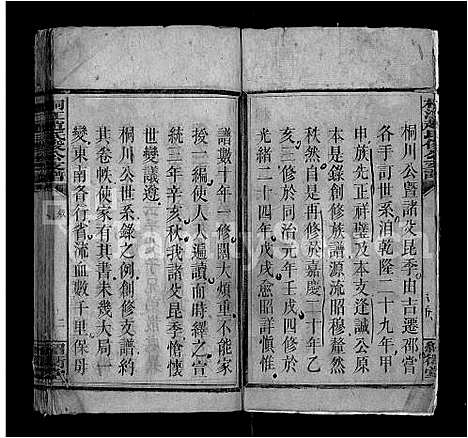 桐川公暨諸父昆季由吉遷邵嘗
各手訂世系洎乾隆二十九年甲
申族先正祥璧及本支逢誠公原
本是錄創修族譜源流昭穆釐然
秩然自是再修於嘉慶二十年乙
亥三修於同治元年壬戌四修於
光緒二十四年戊戌愈昭詳慎惟
譜數十年一修闊大煩重不能家
授一編使人人遍讀而時繹之宣
統三年辛亥秋我諸父昆季愴懷
世變議遵
桐川公世系錄之例創修支譜約
其卷帙使家有其書未幾大局一
變東南各行省流血數千里保毋